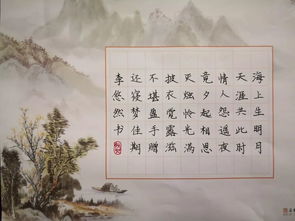 海上生明月
天涯共此时
情人怨遥夜
竟夕起相思
灭烛怜光满
披衣觉露滋
不堪盈手赠
还寝梦佳期
李悠然书